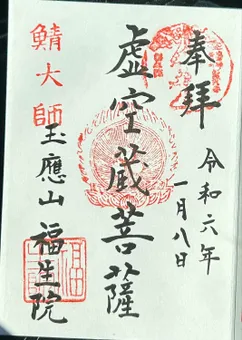 奉拝
令和六年
一月八日
虚空蔵菩薩
鯖大師
玉應山 福生院